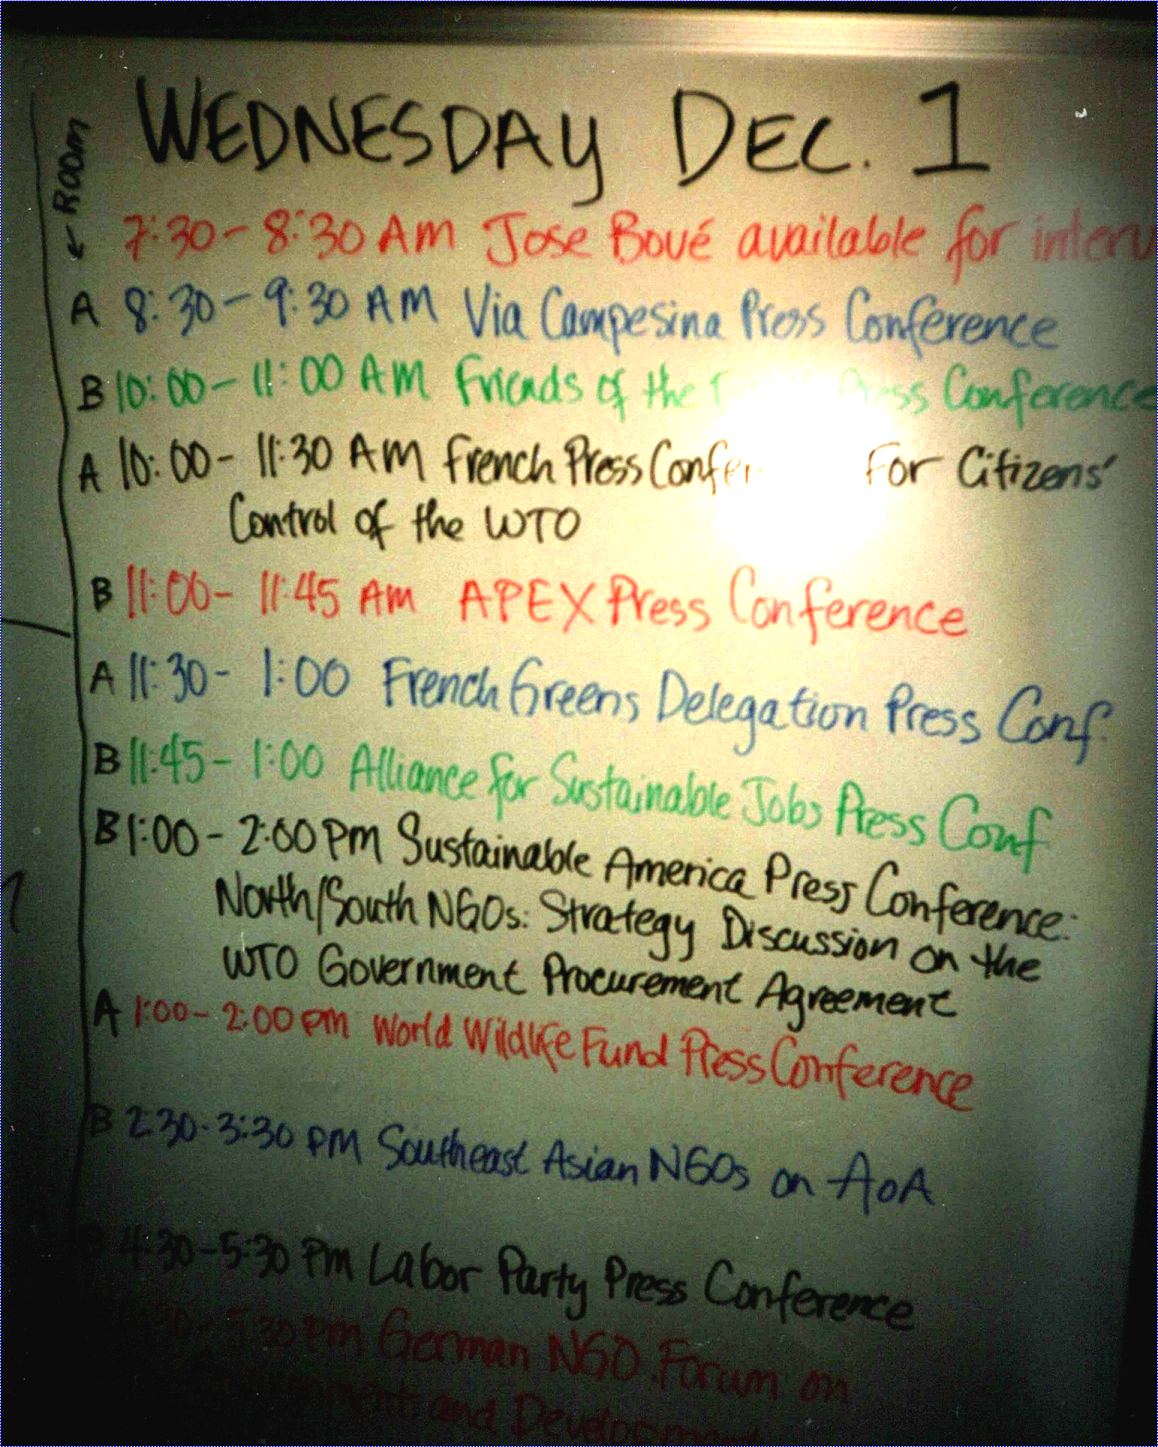 WEDNESDAY DEC. 1
← Room
7:30 - 8:30 AM Jose Bové available for interv
A 8:30 - 9:30 AM Via Campesina Press Conference
B 10:00 - 11:00 AM Friends of the Press Conference
A 10:00 - 11:30 AM French Press Confer For Citizens'
Control of the WTO
B 11:00 - 11:45 AM APEX Press Conference
A 11:30 - 1:00 French Greens Delegation Press Conf.
B 11:45 - 1:00 Alliance for Sustainable Jobs Press Conf
B 1:00 - 2:00 PM Sustainable America Press Conference:
North/South NGOs: Strategy Discussion on the
WTO Government Procurement Agreement
A 1:00 - 2:00 pm World Wildlife Fund Press Conference
B 2:30 - 3:30 PM Southeast Asian NGOs on AoA
4:30 - 5:30 PM Labor Party Press Conference
5:30 pm German NGO Forum on
and Development